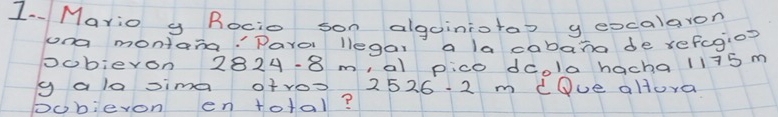 1.- Mario y Rocio son alguinistas y escalaron
una montaña. Para llegar a la cabaña de refugios
subieron 2824.8 m, al pico de la hacha 1175 m
y a la sima otros 2526.2 m ¿Que altura
subieron en total?